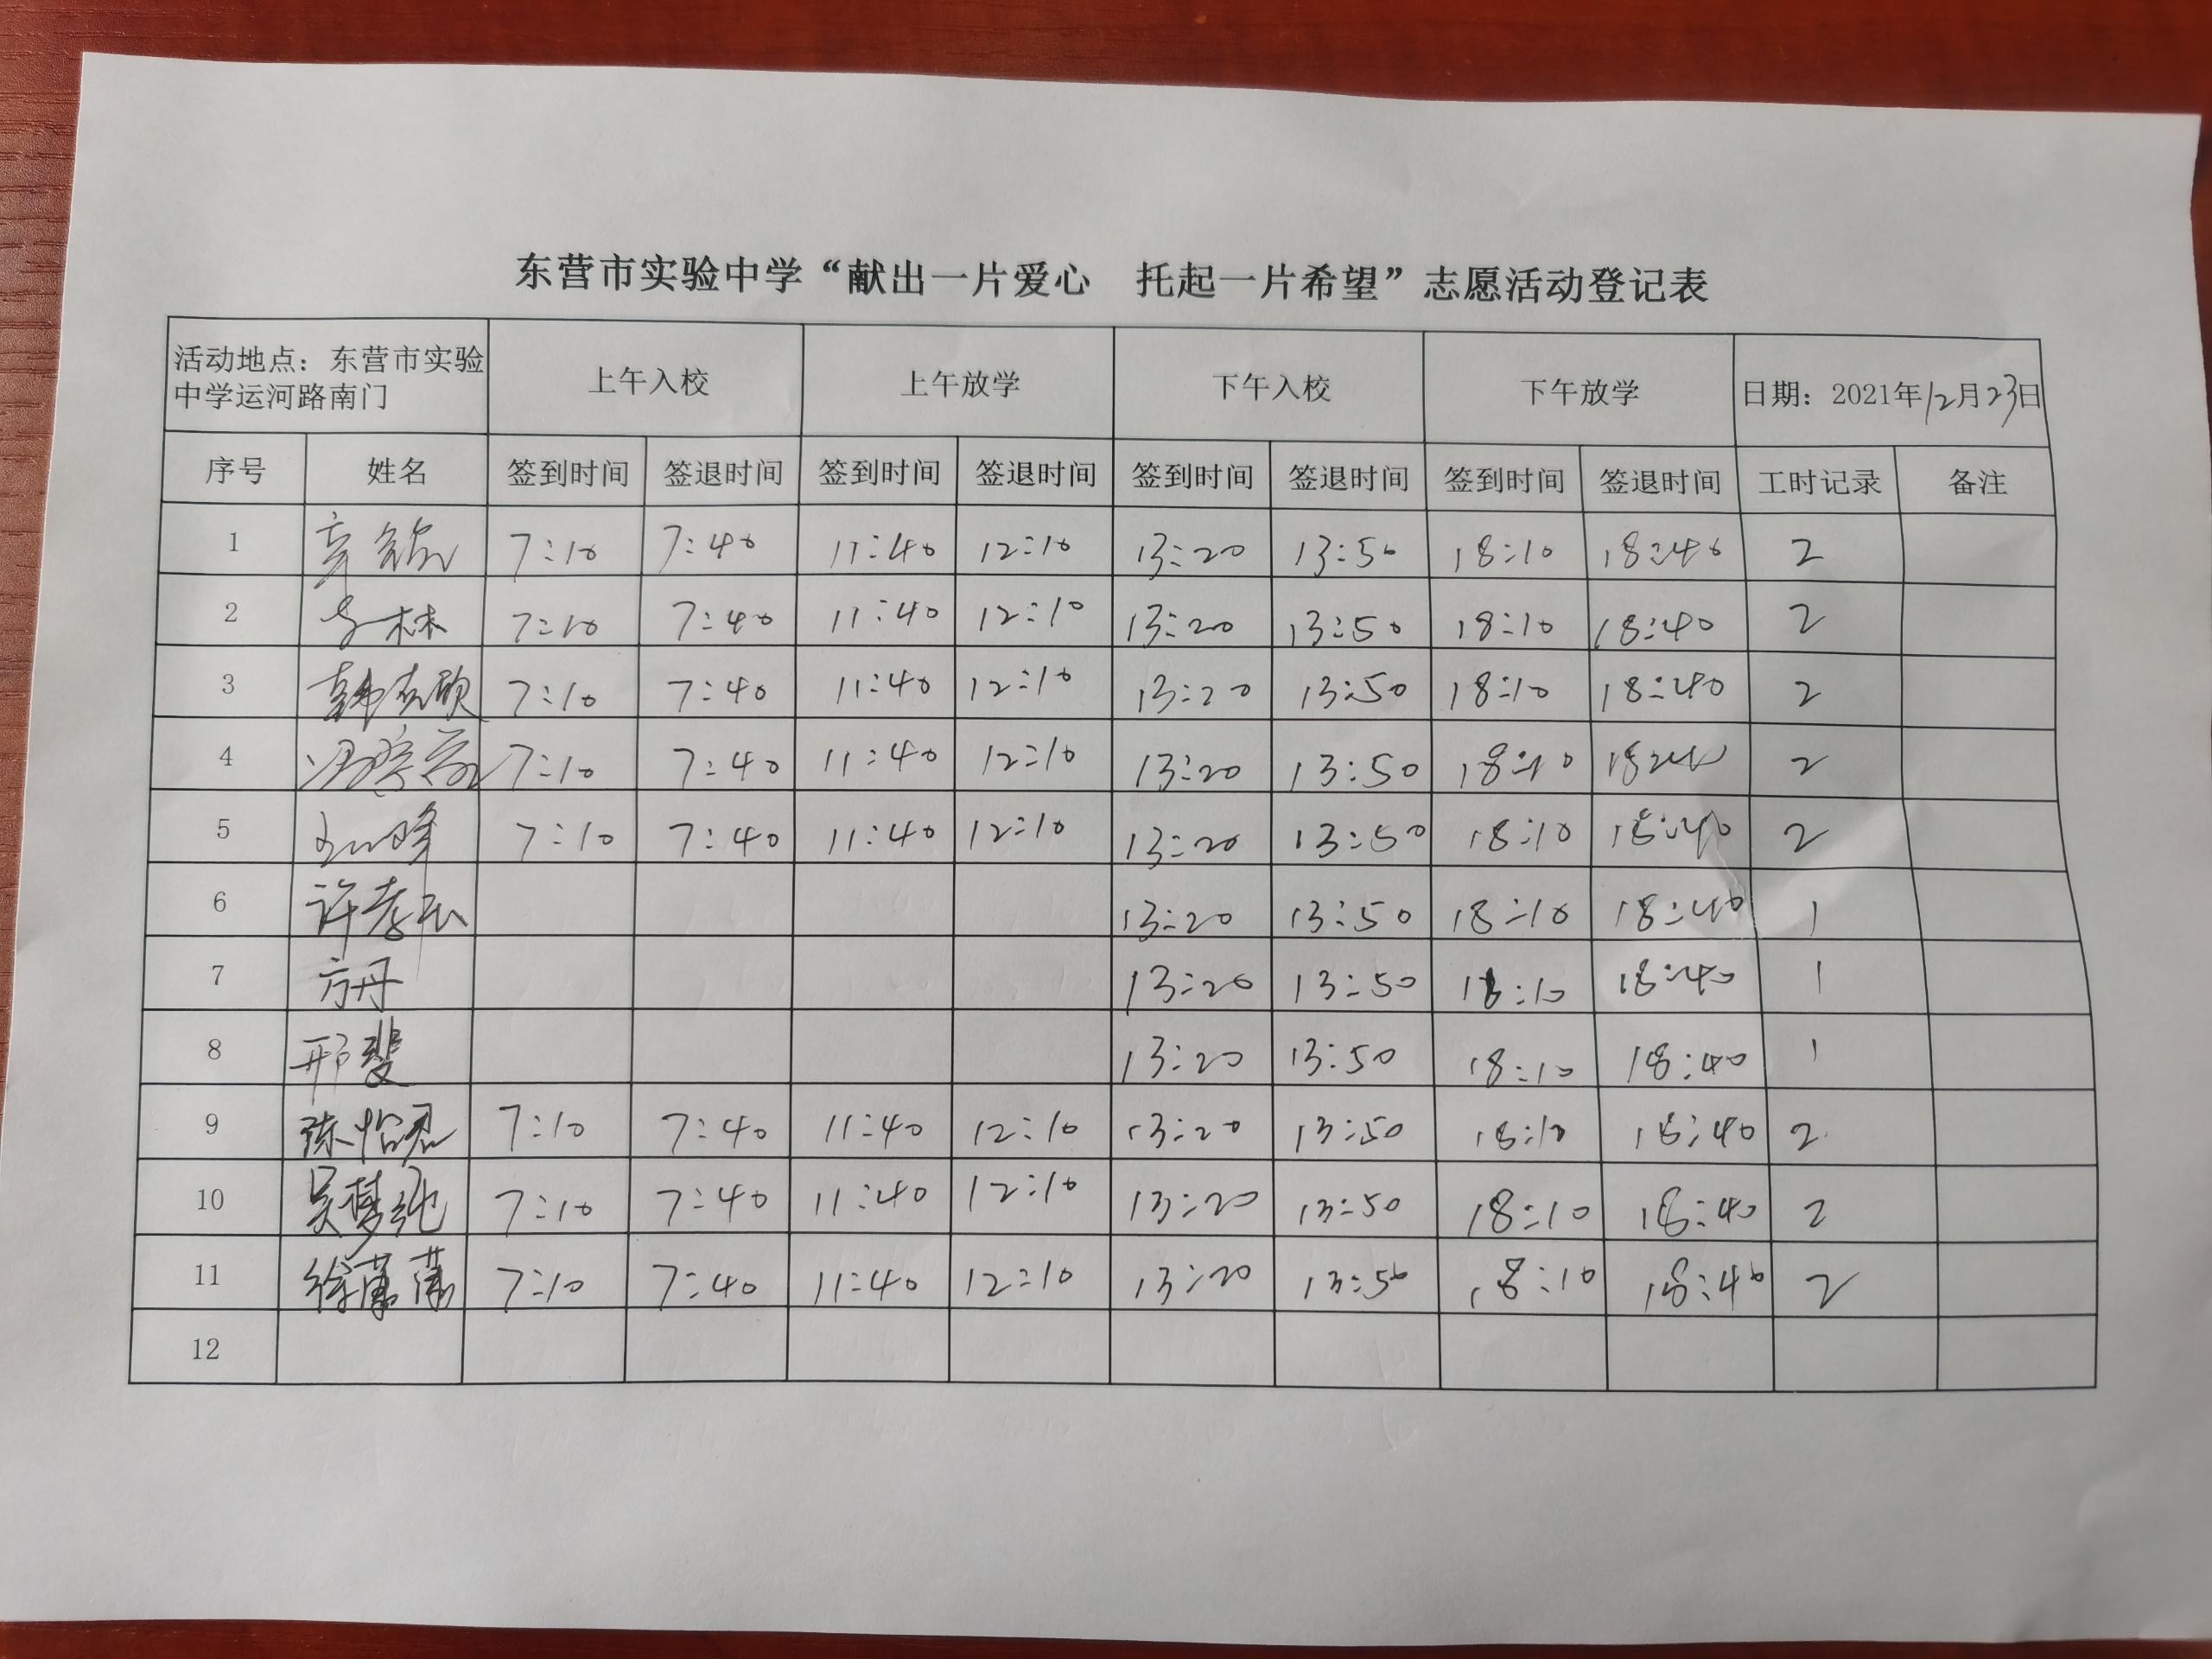 东营市实验中学“献出一片爱心 托起一片希望”志愿活动登记表
活动地点：东营市实验中学运河路南门 上午入校 上午放学 下午入校 下午放学 日期：2021年12月23日
序号 姓名 签到时间 签退时间 签到时间 签退时间 签到时间 签退时间 签到时间 签退时间 工时记录 备注
1 7:10 7:40 11:40 12:10 13:20 13:50 18:10 18:40 2
2 李林 7:10 7:40 11:40 12:10 13:20 13:50 18:10 18:40 2
3 7:10 7:40 11:40 12:10 13:20 13:50 18:10 18:40 2
4 7:10 7:40 11:40 12:10 13:20 13:50 18:10 18:40 2
5 7:10 7:40 11:40 12:10 13:20 13:50 18:10 18:40 2
6 13:20 13:50 18:10 18:40 1
7 方丹 13:20 13:50 18:10 18:40 1
8 邢斐 13:20 13:50 18:10 18:40 1
9 陈怡君 7:10 7:40 11:40 12:10 13:20 13:50 18:10 18:40 2
10 吴梦纯 7:10 7:40 11:40 12:10 13:20 13:50 18:10 18:40 2
11 徐潇潇 7:10 7:40 11:40 12:10 13:20 13:50 18:10 18:40 2
12